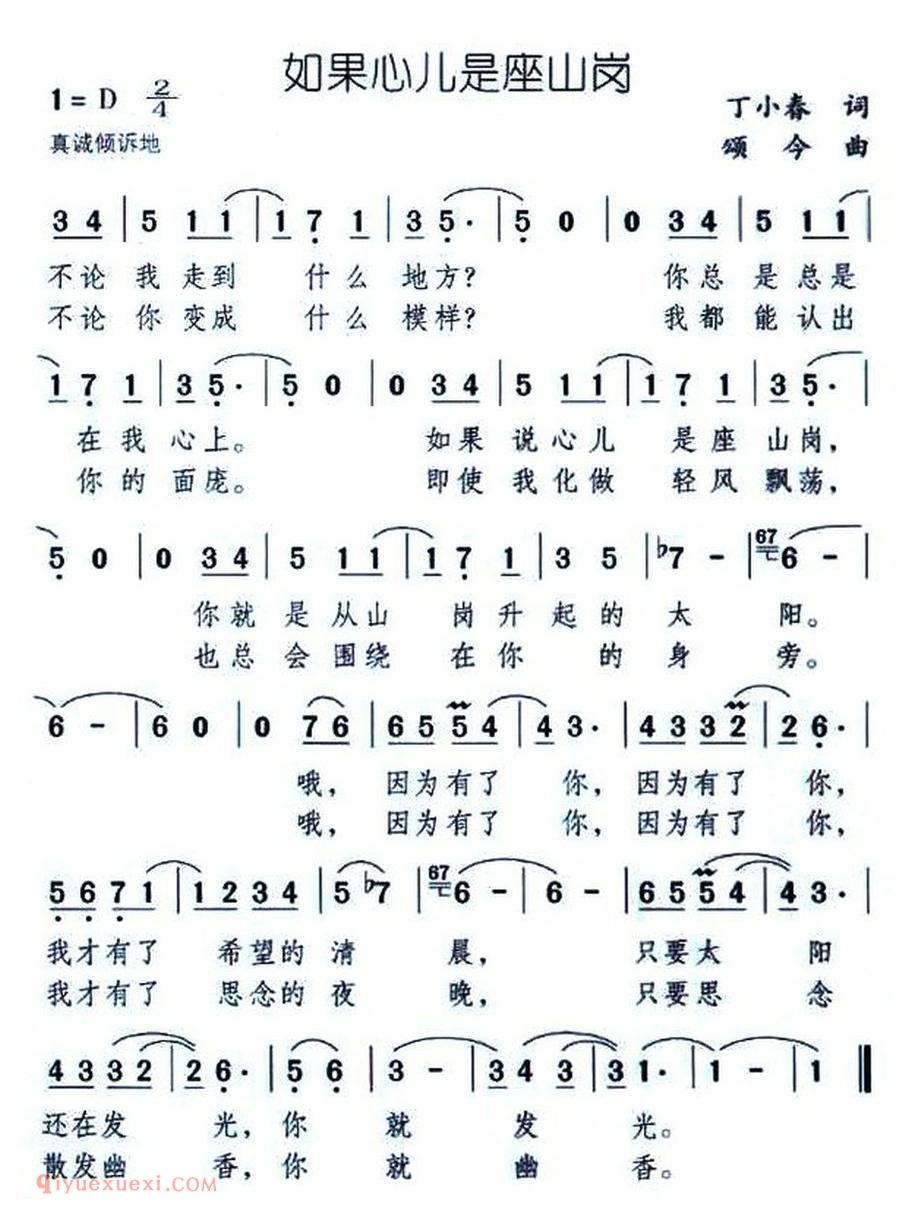 如果心儿是座山岗
1=D 2/4
丁小春 词
真诚倾诉地
颂今 曲
34 | 5 11 | 17 1 | 35· | 5 0 | 0 34 | 5 11 |
不论我走到 什么地方? 你总是总是
不论你变成 什么模样? 我都能认出
17 1 | 35· | 5 0 | 0 34 | 5 11 | 17 1 | 35· |
在我心上。 如果说心儿 是座山岗,
你的面庞。 即使我化做 轻风飘荡,
5 0 | 0 34 | 5 11 | 17 1 | 3 5 | ♭7 - | 67 6 - |
你就是从山 岗升起的太 阳。
也总会围绕 在你 的身 旁。
6 - | 6 0 | 0 76 | 6554 | 43· | 4332 | 26· |
哦, 因为有了 你, 因为有了 你,
哦, 因为有了 你, 因为有了 你,
5671 | 1234 | 5 ♭7 | 67 6 - | 6 - | 6554 | 43· |
我才有了 希望的清 晨, 只要太 阳
我才有了 思念的夜 晚, 只要思 念
4332 | 26· | 5 6 | 3 - | 34 3 | 31· | 1 - | 1 ‖
还在发 光,你 就 发 光。
散发幽 香,你 就 幽 香。
qiyuexuexi.com